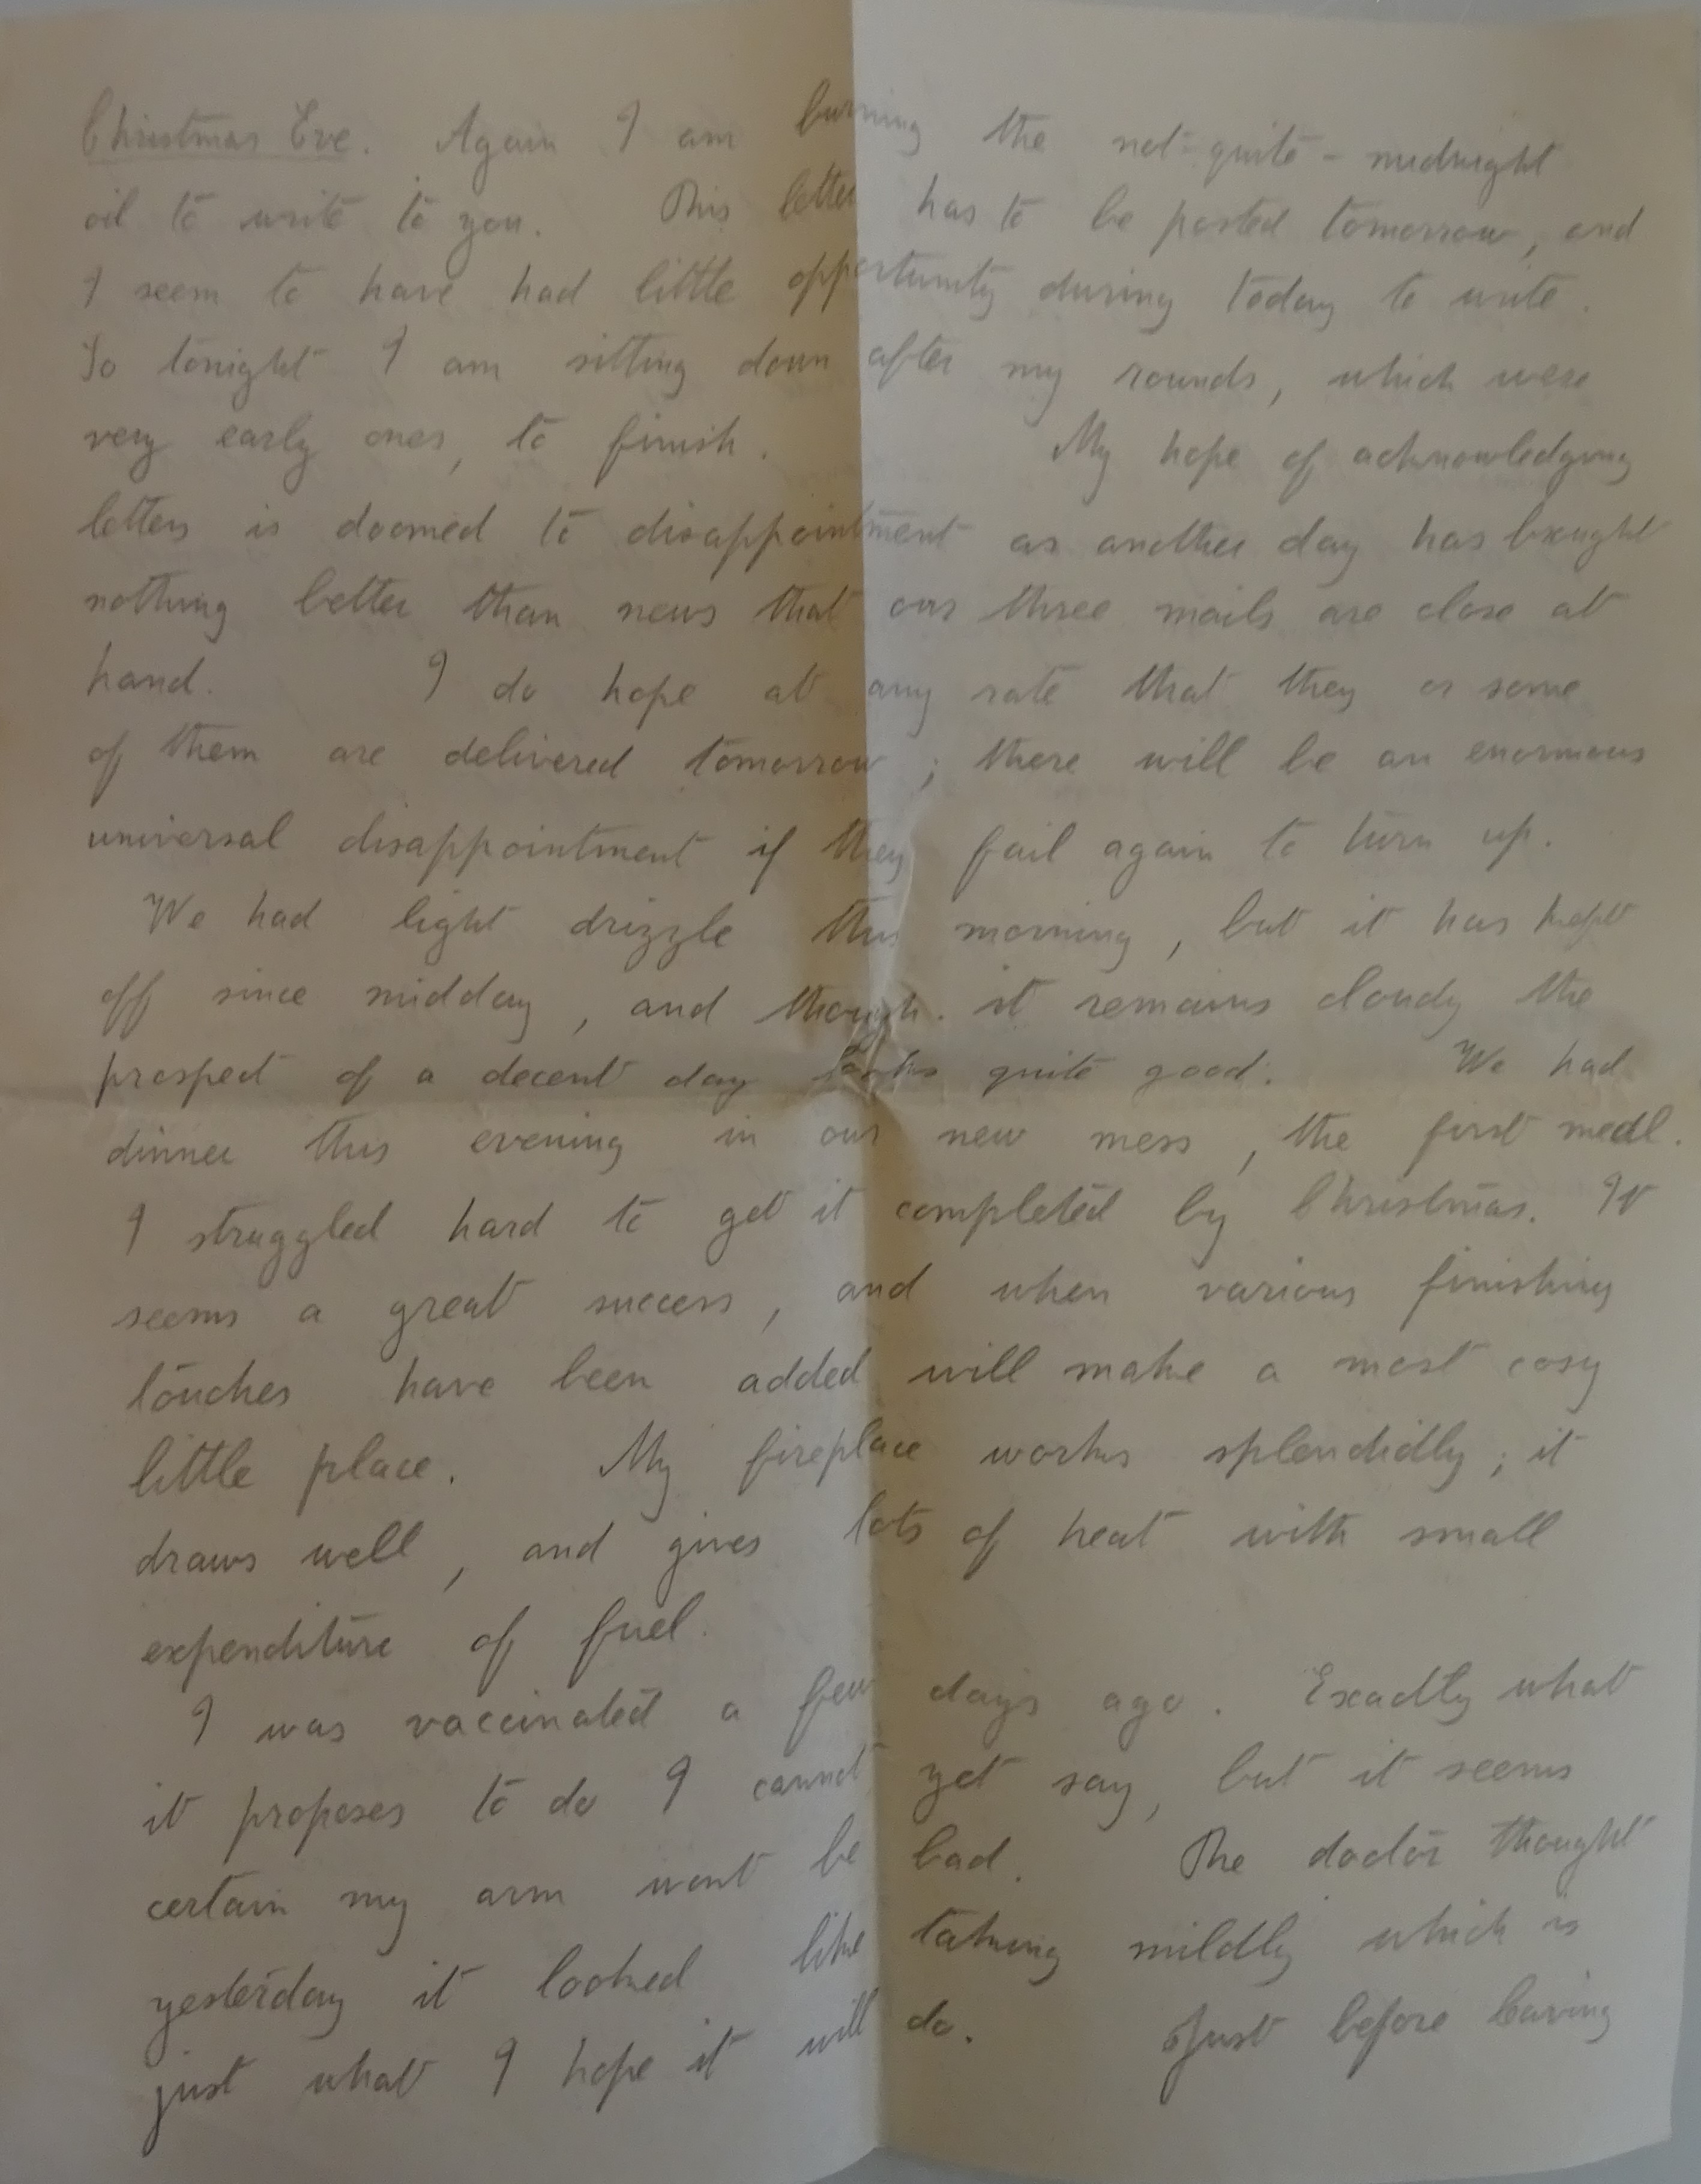 Christmas Eve. Again I am burning the not-quite-midnight
oil to write to you. This letter has to be posted tomorrow, and
I seem to have had little opportunity during today to write.
So tonight I am sitting down after my rounds, which were
very early ones, to finish. My hope of acknowledging
letters is doomed to disappointment as another day has brought
nothing better than news that our three mails are close at
hand. I do hope at any rate that they or some
of them are delivered tomorrow; there will be an enormous
universal disappointment if they fail again to turn up.
We had light drizzle this morning, but it has kept
off since midday, and though it remains cloudy the
prospect of a decent day looks quite good. We had
dinner this evening in our new mess, the first meal.
I struggled hard to get it completed by Christmas. It
seems a great success, and when various finishing
touches have been added will make a most cosy
little place. My fireplace works splendidly; it
draws well, and gives lots of heat with small
expenditure of fuel.
I was vaccinated a few days ago. Exactly what
it proposes to do I cannot yet say, but it seems
certain my arm wont be bad. The doctor thought
yesterday it looked like taking mildly which is
just what I hope it will do. Just before leaving